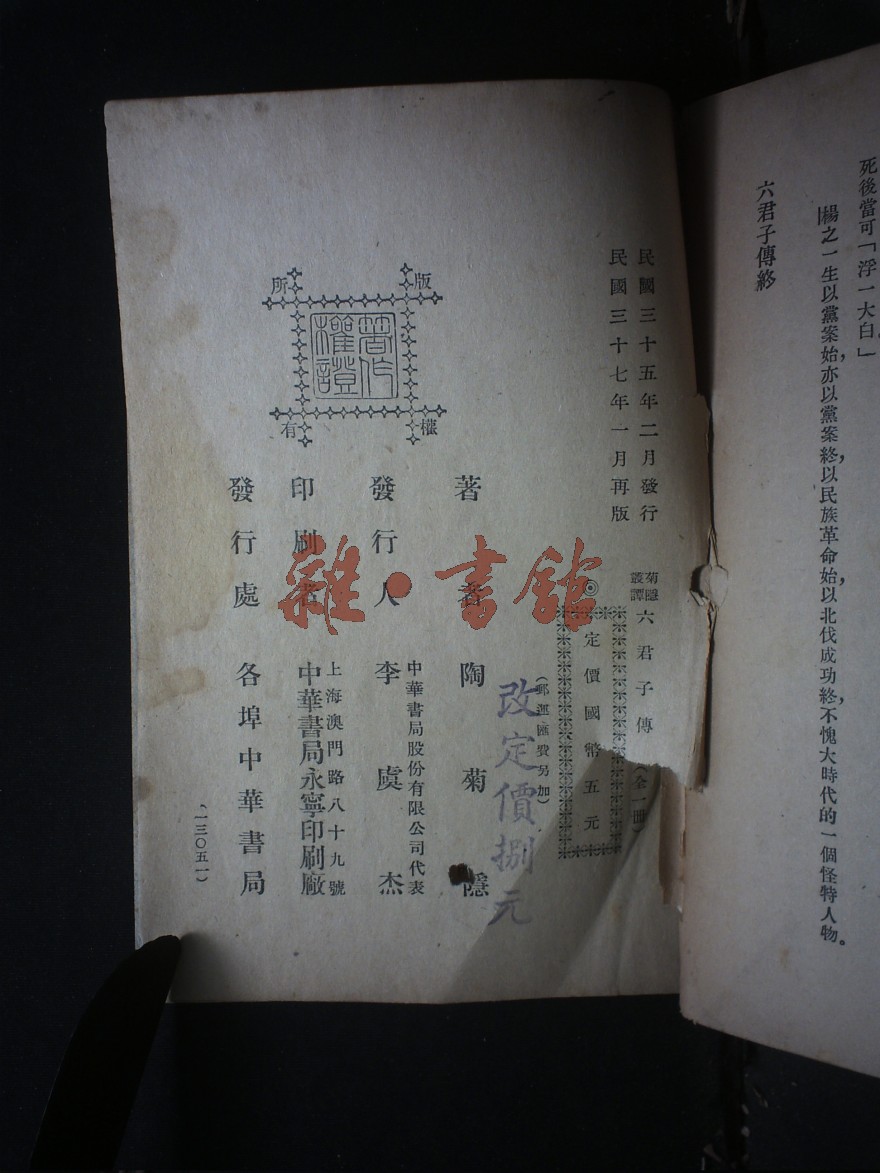 死後當可「浮一大白」
楊之一生以黨案始,亦以黨案終,以民族革命始,以北伐成功終,不愧大時代的一個怪特人物。
六君子傳終
民國三十五年二月發行
民國三十七年一月再版
菊隱叢譚
六君子傳(全一冊)
◎定價國幣五元
(郵運匯費另加)
改定價捌元
著者 陶菊隱
發行人 中華書局股份有限公司代表
李虞杰
印刷者 上海澳門路八十九號
中華書局永寧印刷廠
發行處 各埠中華書局
(一三〇五一)
版權所有
著作權證
雜·書館